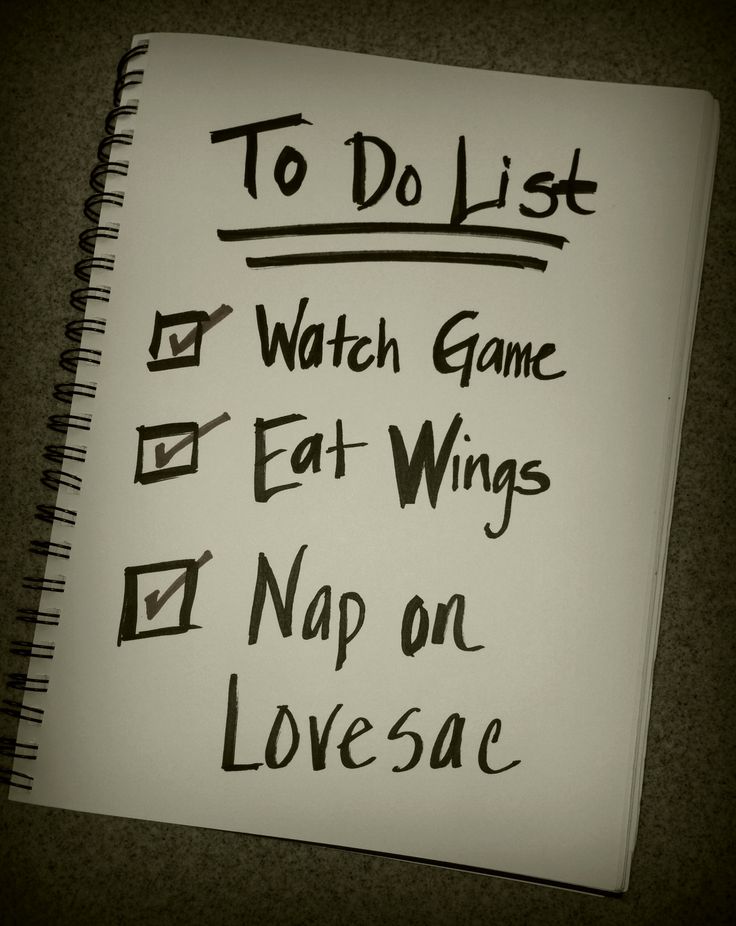 To Do List
Watch Game
Eat Wings
Nap on
Lovesac